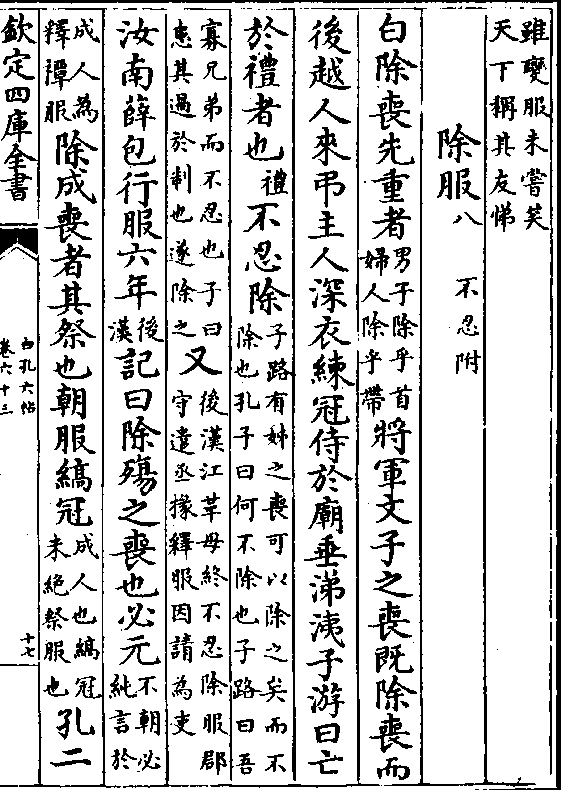 雖變服未嘗笑
天下稱其友悌
除服八　不忍附
白除喪先重者男子除乎首婦人除乎帶將軍文子之喪旣除喪而
後越人來弔主人深衣練冠侍於廟垂涕洟子游曰亡
於禮者也禮不忍除子路有姊之喪可以除之矣而不除也孔子曰何不除也子路曰吾
寡兄弟而不忍也子曰恵其過於制也遂除之又後漢江革母終不忍除服郡守遣丞掾釋服因請為吏
汝南薛包行服六年後漢記曰除殤之喪也必元不朝必純言於
成人為釋禫服除成喪者其祭也朝服縞冠成人也縞冠未絶祭服也孔二
欽定四庫全書
白孔六帖
卷六十三
十七